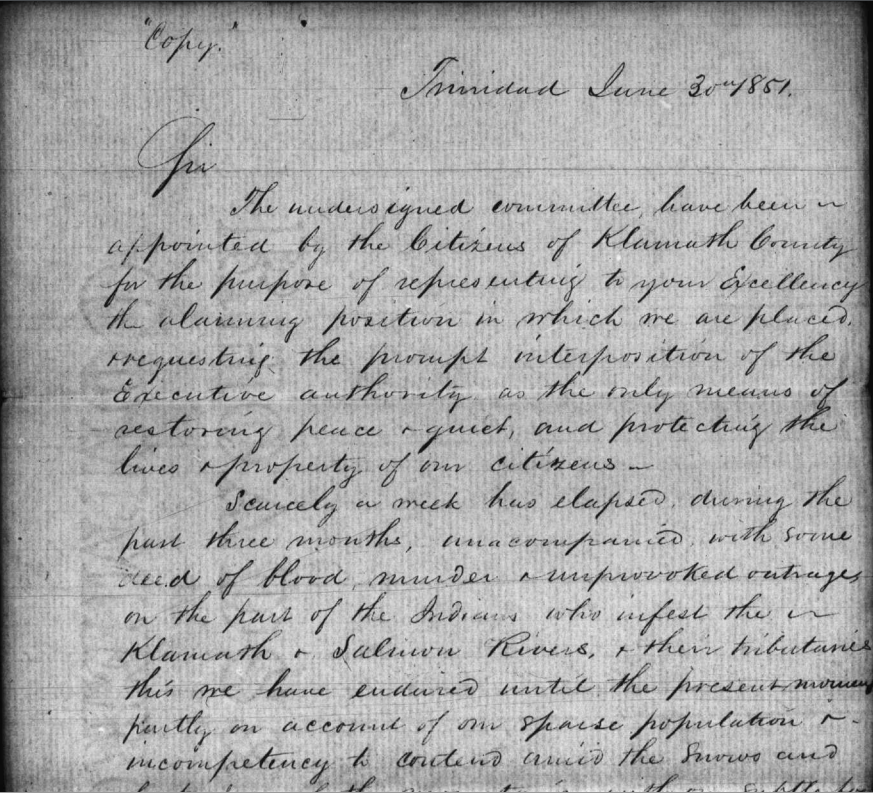 "Copy."
Trinidad June 30th 1851.
Sir
The undersigned committee, have been
appointed by the Citizens of Klamath County
for the purpose of representing to your Excellency
the alarming position in which we are placed,
& requesting the prompt interposition of the
Executive authority as the only means of
restoring peace & quiet, and protecting the
lives & property of our citizens -
Scarcely a week has elapsed, during the
past three months, unacompanied, with some
deed of blood, murder & unprovoked outrages
on the part of the Indians who infest the
Klamath & Salmon Rivers, & their tributaries
this we have endured until the present moment
partly on account of our sparse population &
incompetency to contend amid the snows and